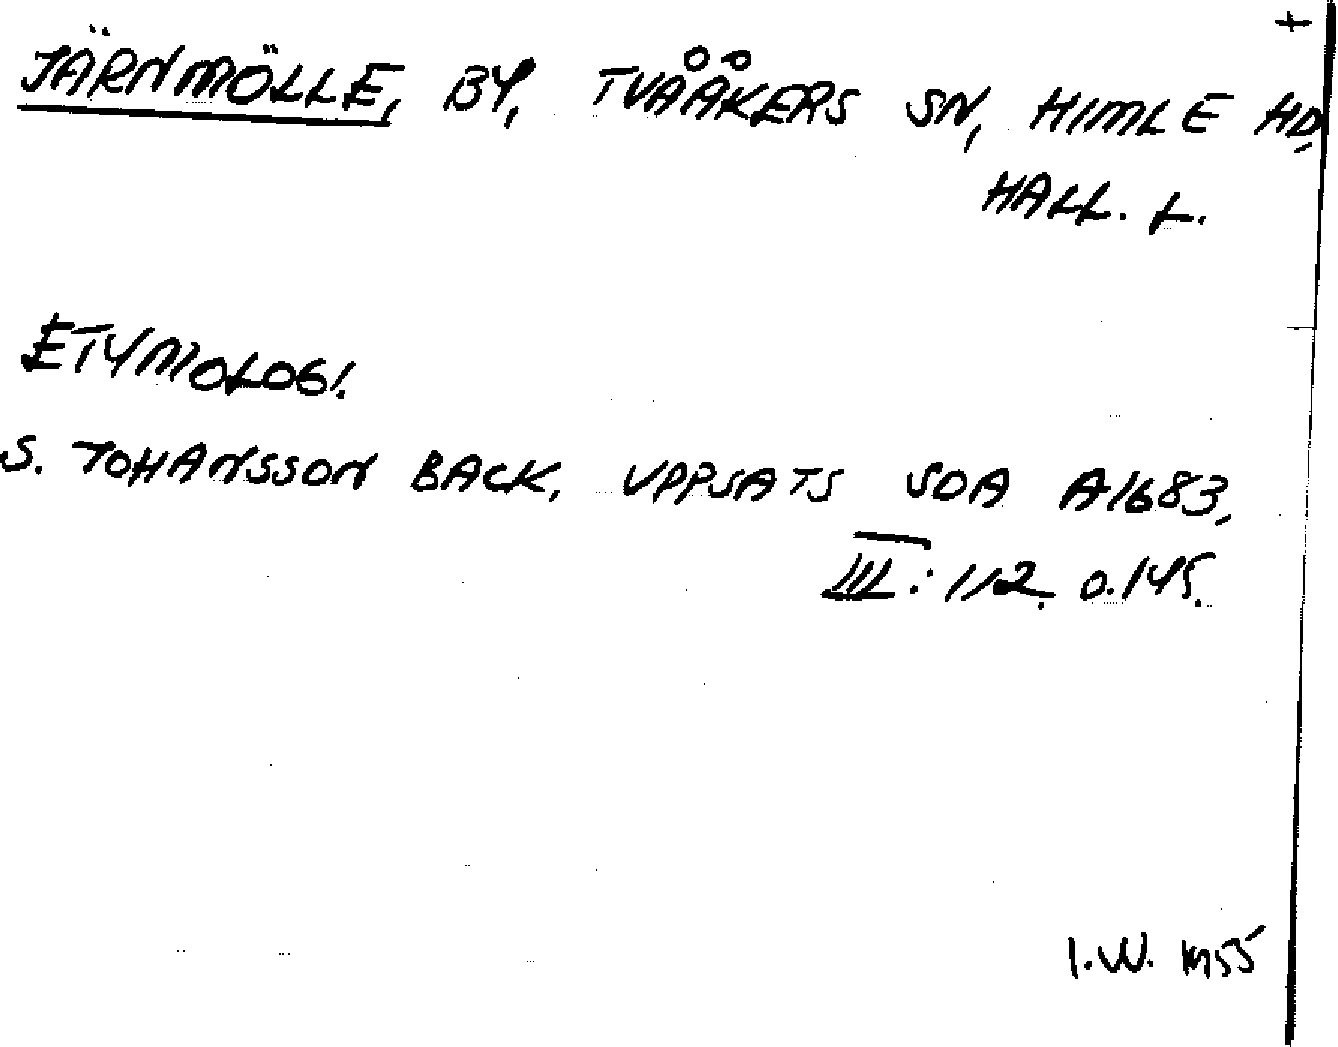 +
JÄRNMÖLLE, BY, TVÅÅKERS SN, HIMLE HD,
HALL. L.
ETYMOLOGI.
S. JOHANSSON BACK, UPPSATS SOA A1683,
III: 112. o. 145.
I.W. 1955